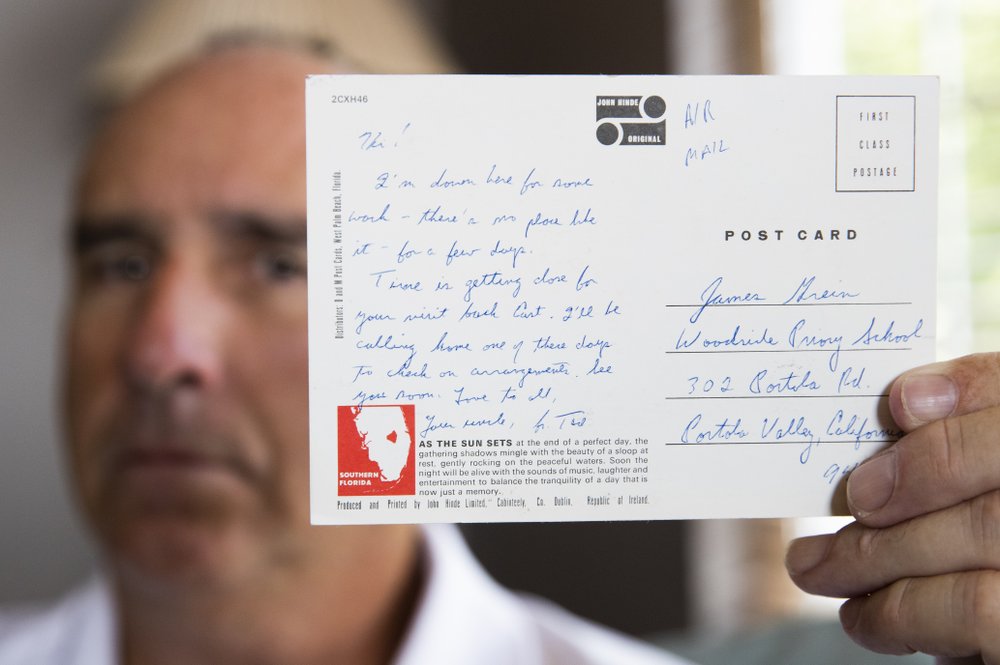 2CXH46
JOHN HINDE
ORIGINAL
AIR
MAIL
FIRST
CLASS
POSTAGE
POST CARD
Hi!
I'm down here for some
work - there's no place like
it - for a few days.
Time is getting close for
your visit back East. I'll be
calling home one of these days
to check on arrangements. See
you soon. Love to all,
Your uncle, fr. Ted
James Grein
Woodside Priory School
302 Portola Rd.
Portola Valley, California
Distributors: D and M Post Cards, West Palm Beach, Florida.
SOUTHERN
FLORIDA
AS THE SUN SETS at the end of a perfect day, the
gathering shadows mingle with the beauty of a sloop at
rest, gently rocking on the peaceful waters. Soon the
night will be alive with the sounds of music, laughter and
entertainment to balance the tranquility of a day that is
now just a memory.
Produced and Printed by John Hinde Limited, Cabinteely, Co. Dublin, Republic of Ireland.